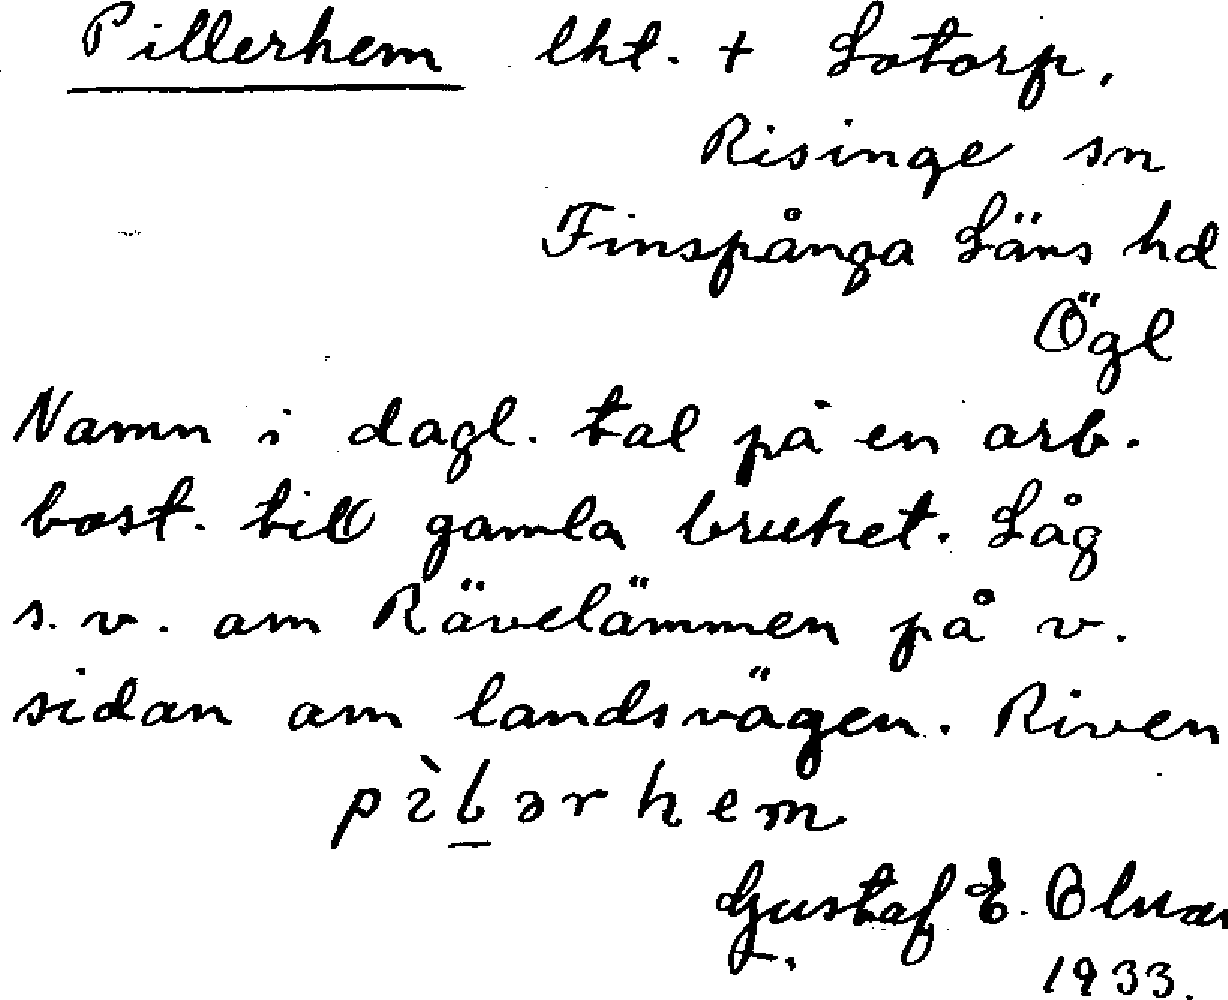 Pillerhem lht. + Lotorp,
Risinge sn
Finspånga Läns hd
Ögl
Namn i dagl. tal på en arb.
bost. till gamla bruket. Låg
s. v. om Rävelämmen på v.
sidan om landsvägen. Riven
Gustaf E.
1933.